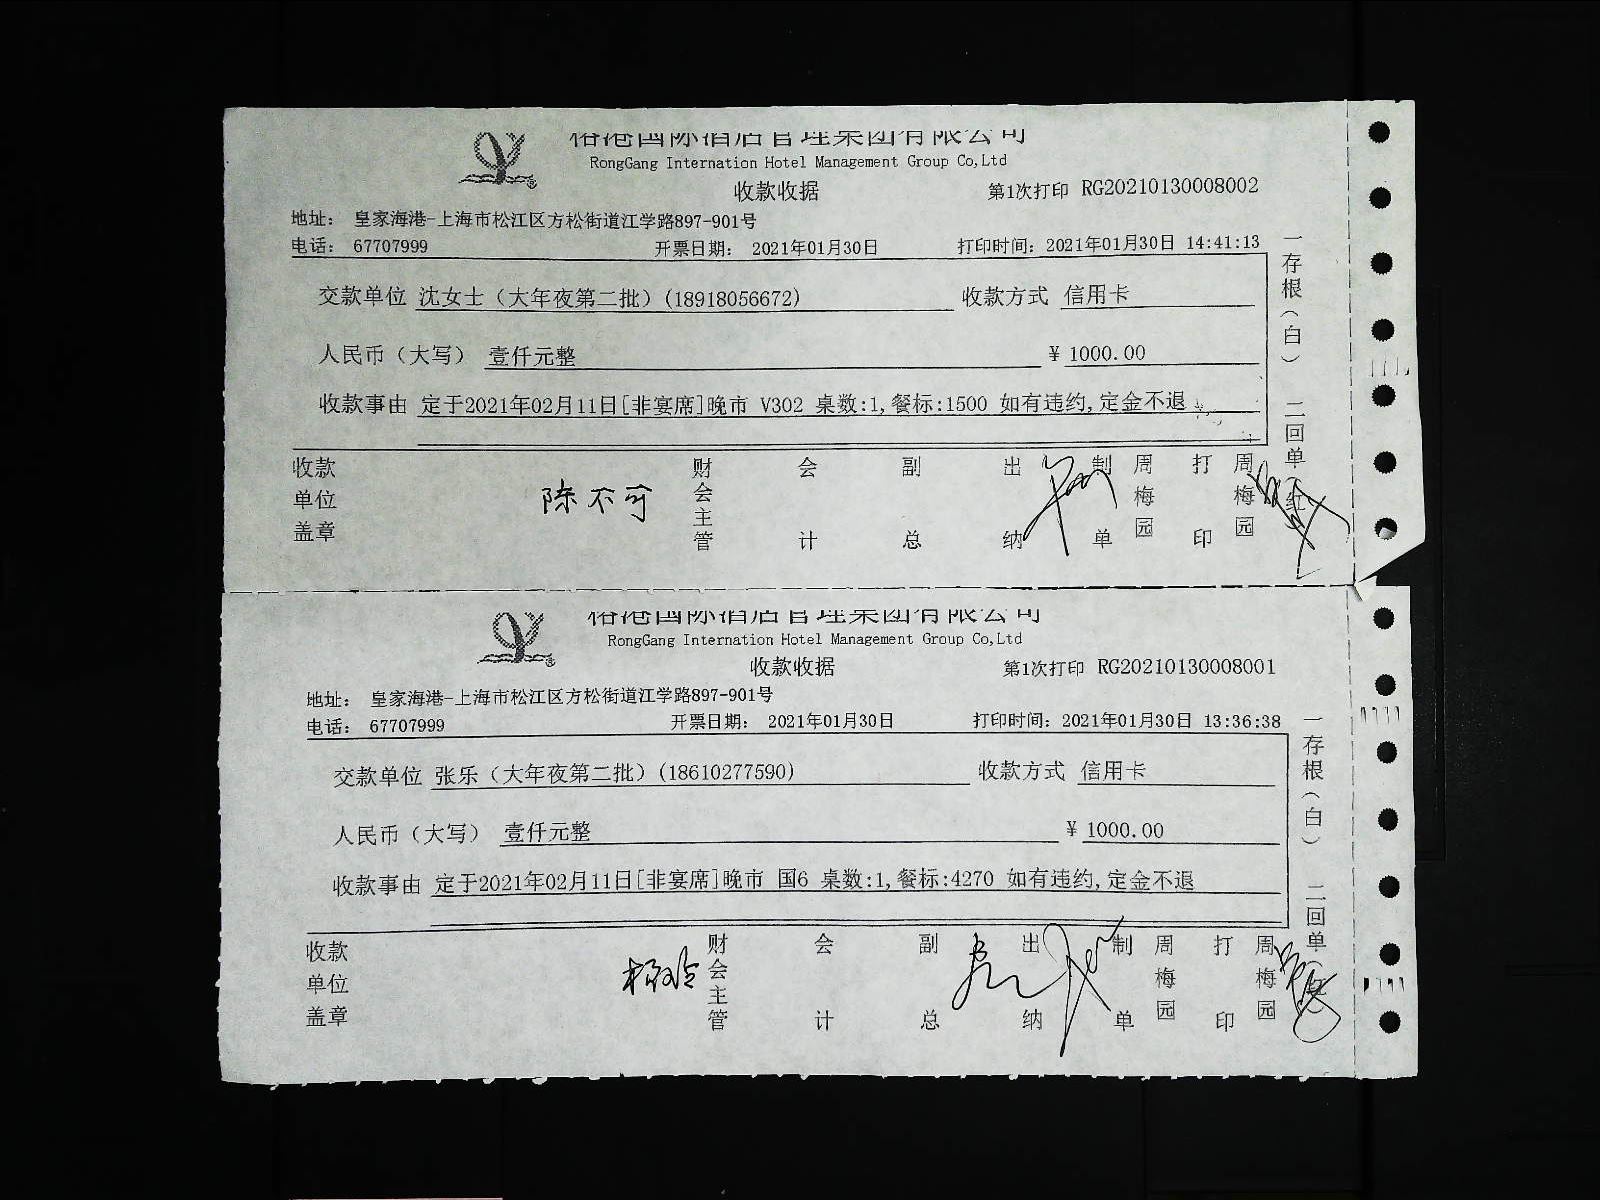 裕港国际酒店管理集团有限公司
RongGang Internation Hotel Management Group Co,Ltd
收款收据 第1次打印 RG20210130008002
地址： 皇家海港-上海市松江区方松街道江学路897-901号
电话： 67707999 开票日期： 2021年01月30日 打印时间：2021年01月30日 14:41:13
交款单位 沈女士（大年夜第二批）(18918056672) 收款方式 信用卡
人民币（大写） 壹仟元整 ¥ 1000.00
收款事由 定于2021年02月11日[非宴席]晚市 V302 桌数:1,餐标:1500 如有违约,定金不退
一存根（白） 二回单（红）
收款单位盖章 陈不可 财会主管 会计 副总 出纳 制单 周梅园 打印 周梅园
裕港国际酒店管理集团有限公司
RongGang Internation Hotel Management Group Co,Ltd
收款收据 第1次打印 RG20210130008001
地址： 皇家海港-上海市松江区方松街道江学路897-901号
电话： 67707999 开票日期： 2021年01月30日 打印时间：2021年01月30日 13:36:38
交款单位 张乐（大年夜第二批）(18610277590) 收款方式 信用卡
人民币（大写） 壹仟元整 ¥ 1000.00
收款事由 定于2021年02月11日[非宴席]晚市 国6 桌数:1,餐标:4270 如有违约,定金不退
一存根（白） 二回单
收款单位盖章 财会主管 会计 副总 出纳 制单 周梅园 打印 周梅园